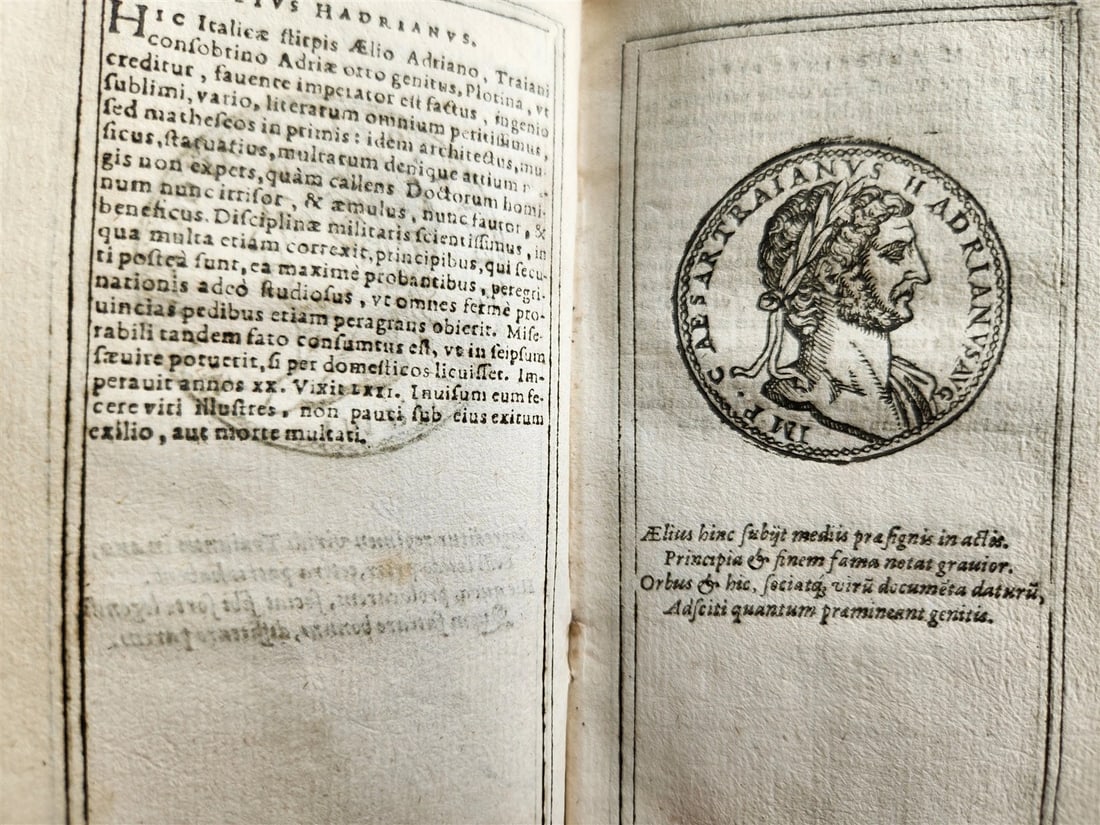 IVS HADRIANVS.
HIC Italicæ ſtirpis Ælio Adriano, Traiani
conſobrino Adriæ orto genitus, Plotina, vt
creditur, fauente imperator eſt factus, ingenio
ſublimi, vario, literarum omnium peritiſſimus,
ſed matheſeos in primis: idem architectus, mu-
ſicus, ſtatuarius, multarum denique artium
gis non expers, quàm callens Doctorum homi-
num nunc irriſor, & æmulus, nunc fautor, &
beneficus. Diſciplinæ militaris ſcientiſſimus, in
qua multa etiam correxit, principibus, qui ſecu-
ti poſtea ſunt, ea maximè probantibus, peregri-
nationis adeò ſtudioſus, vt omnes fermè pro-
uincias pedibus etiam peragrans obierit. Miſe-
rabili tandem fato conſumtus eſt, vt in ſeipſum
ſæuire potuerit, ſi per domeſticos licuiſſet. Im-
perauit annos XX. Vixit LXXI. Inuiſum eum fe-
cere viri illuſtres, non pauci ſub eius exitum
exilio, aut morte multati.
IMP. CAESAR TRAIANVS HADRIANVS AVG
Ælius hinc ſubijt mediis præſignis in actis.
Principia & finem fama notat grauior.
Orbus & hic, ſociatq; virũ documẽta daturũ,
Adſciti quantum præmineant genitis.